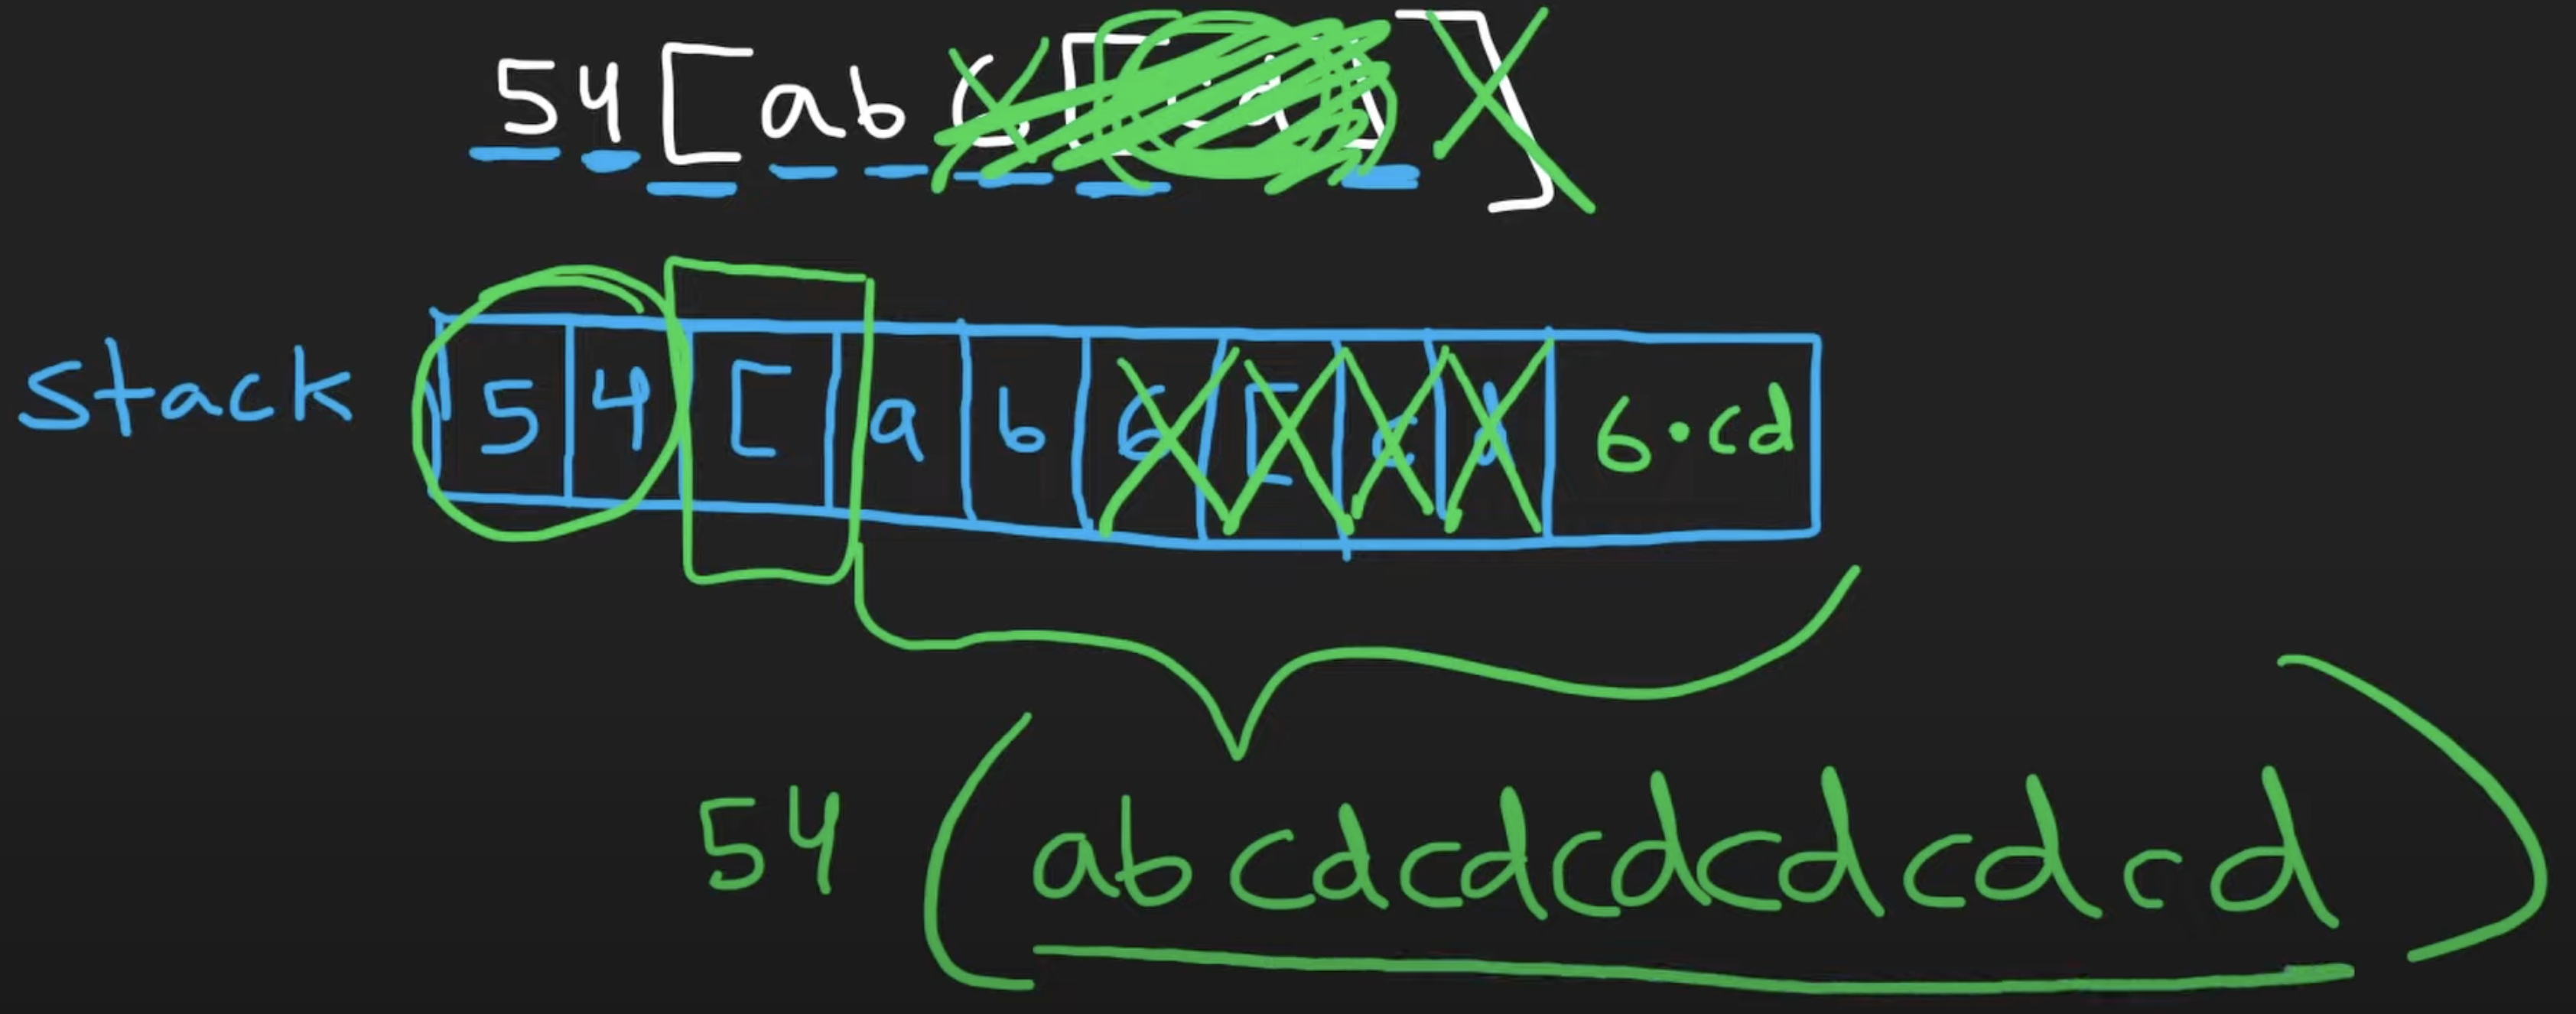 54[ab6[cd]]
Stack 5 4 [ a b 6 [ c d 6·cd
54 (abcdcdcdcdcdcd)